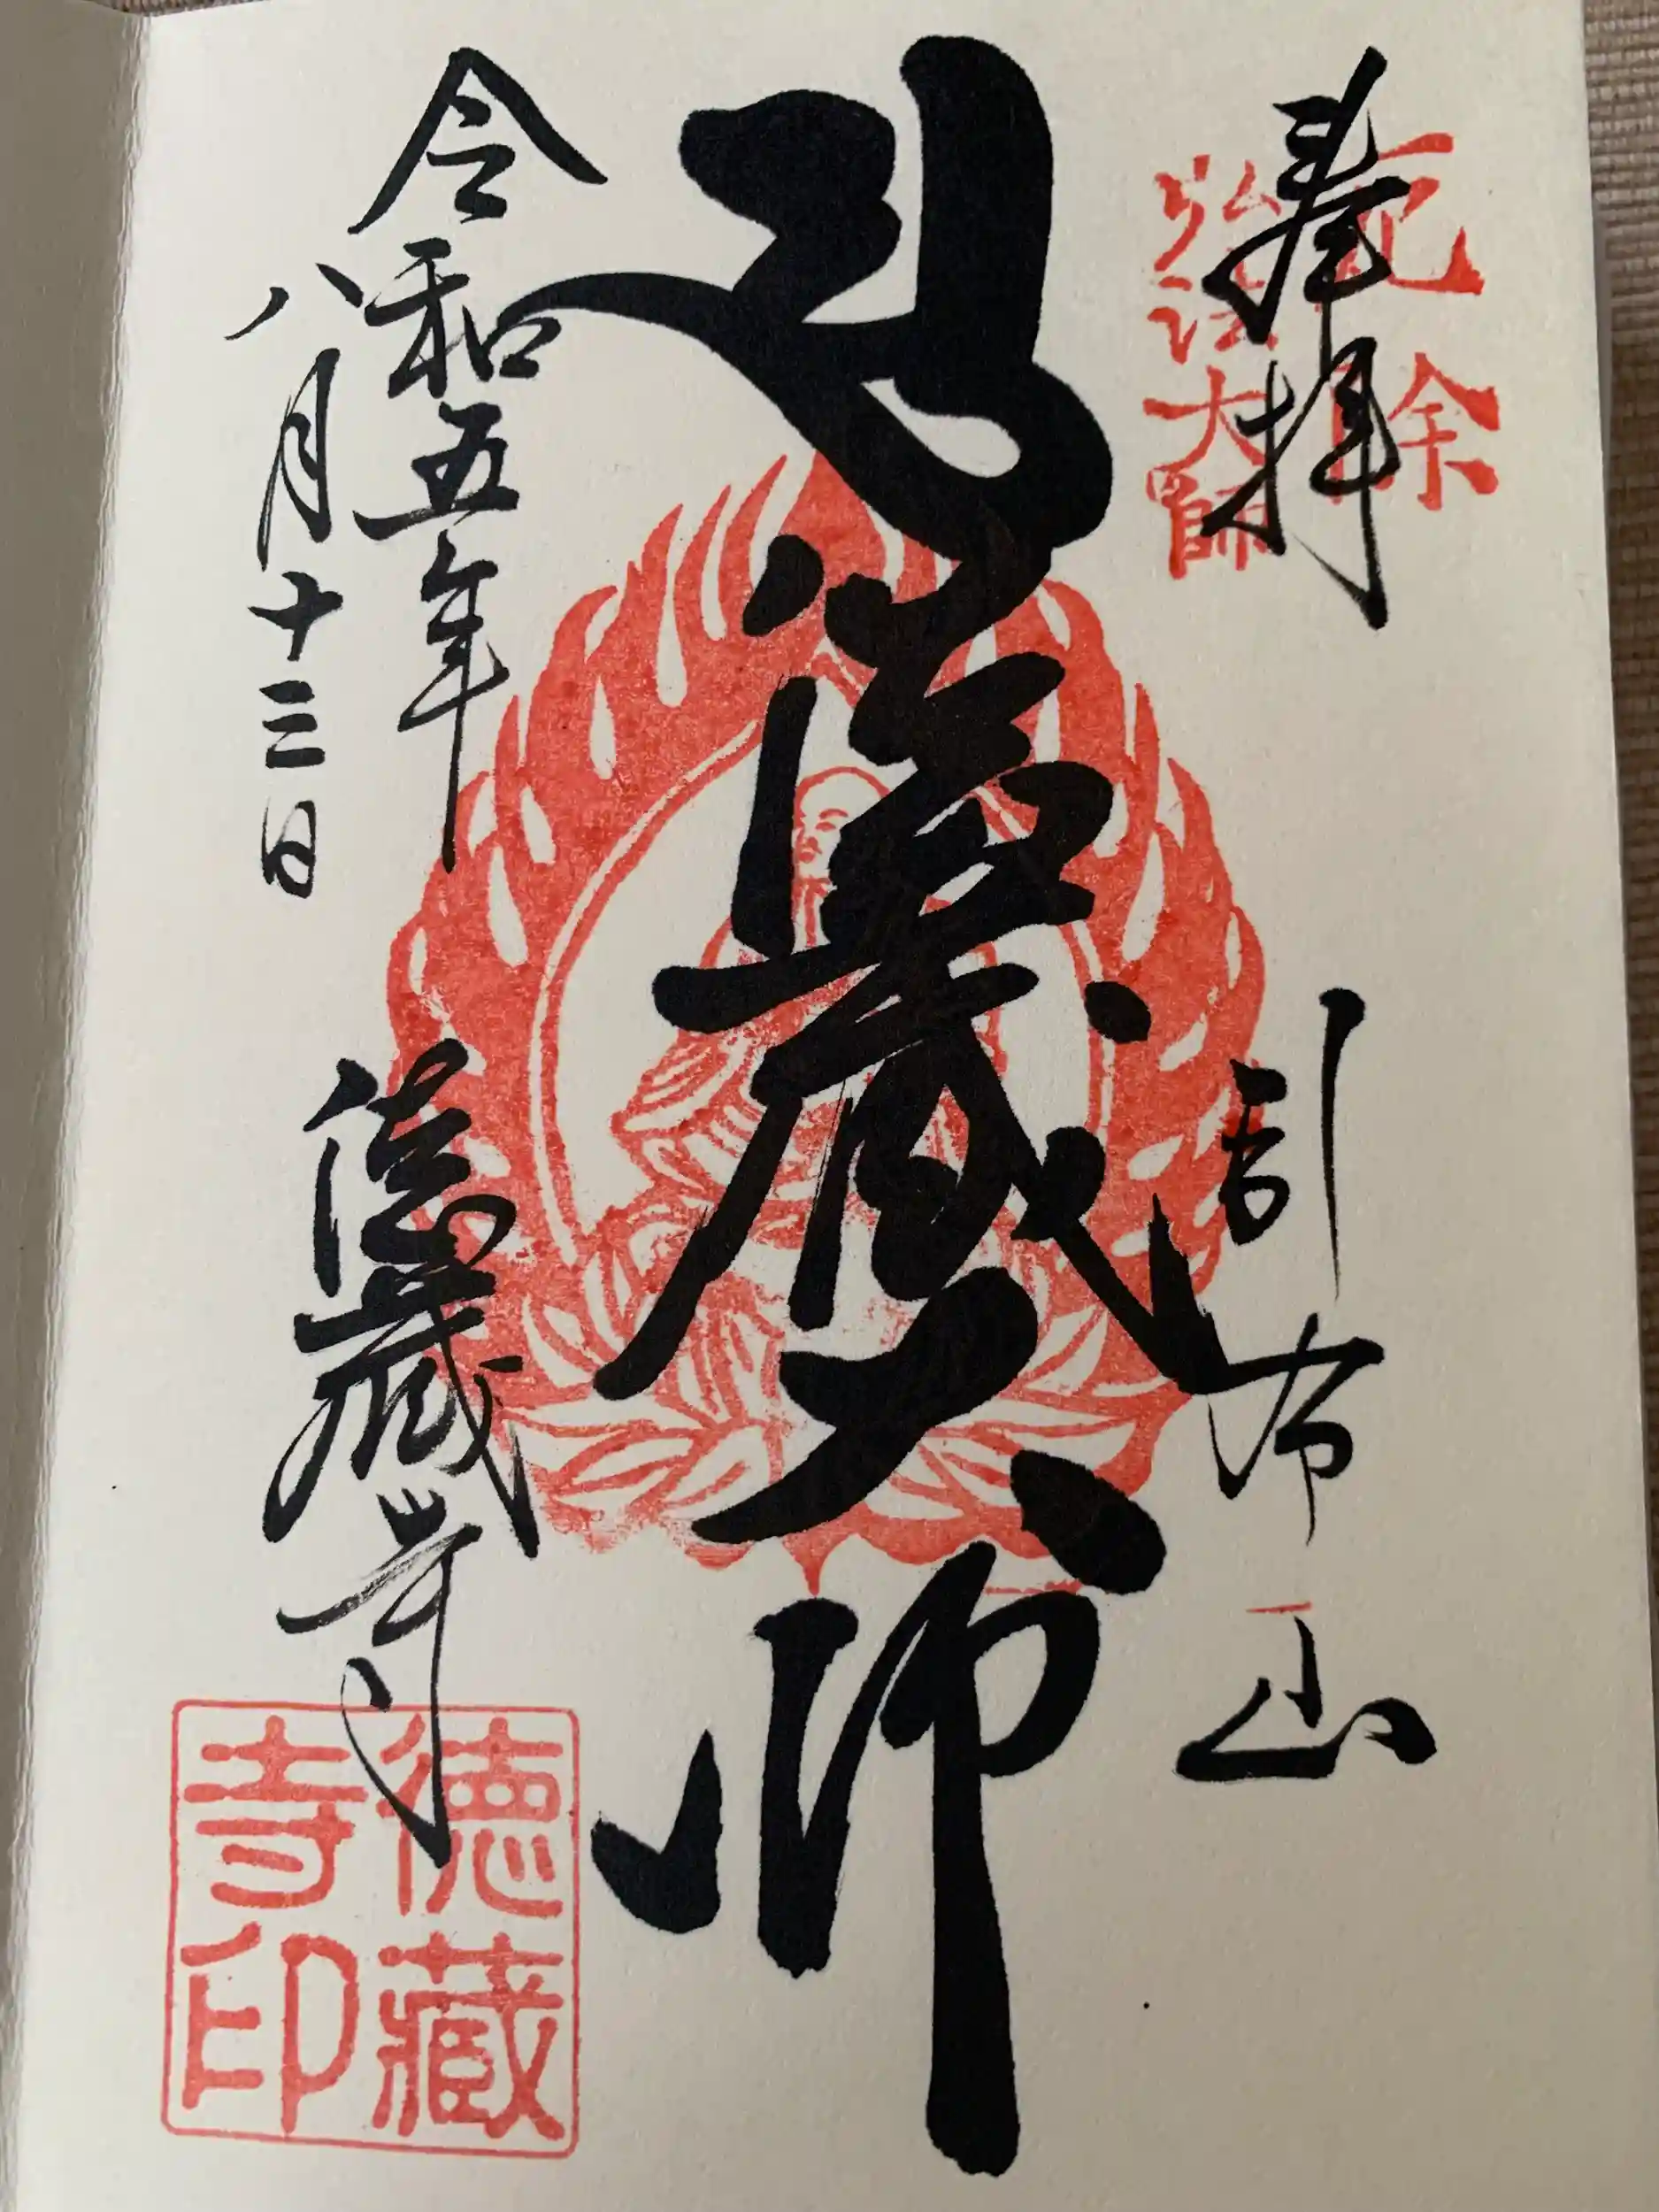 奉拝
厄除
大師
引布山
徳蔵大師
令和五年
八月十三日
徳蔵寺
徳蔵
寺印